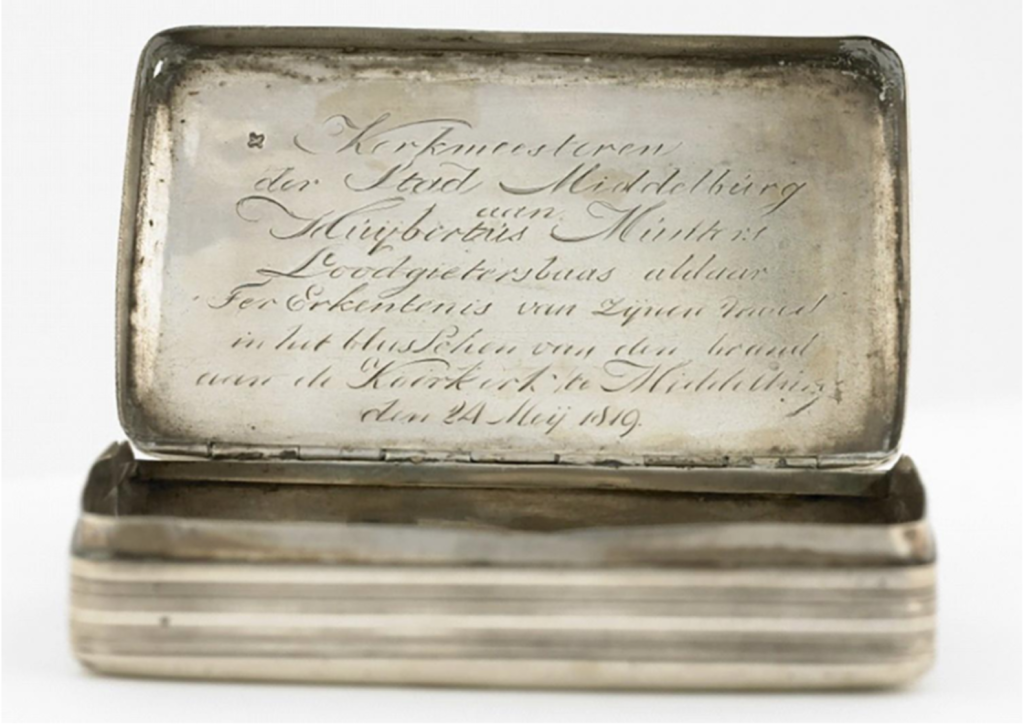 Kerkmeesteren
der Stad Middelburg
aan
Huijbertus Minters
Loodgietersbaas aldaar
Ter Erkentenis van zijnen
in het blusschen van den brand
aan de Koorkerk te Middelburg
den 24 Meij 1819.